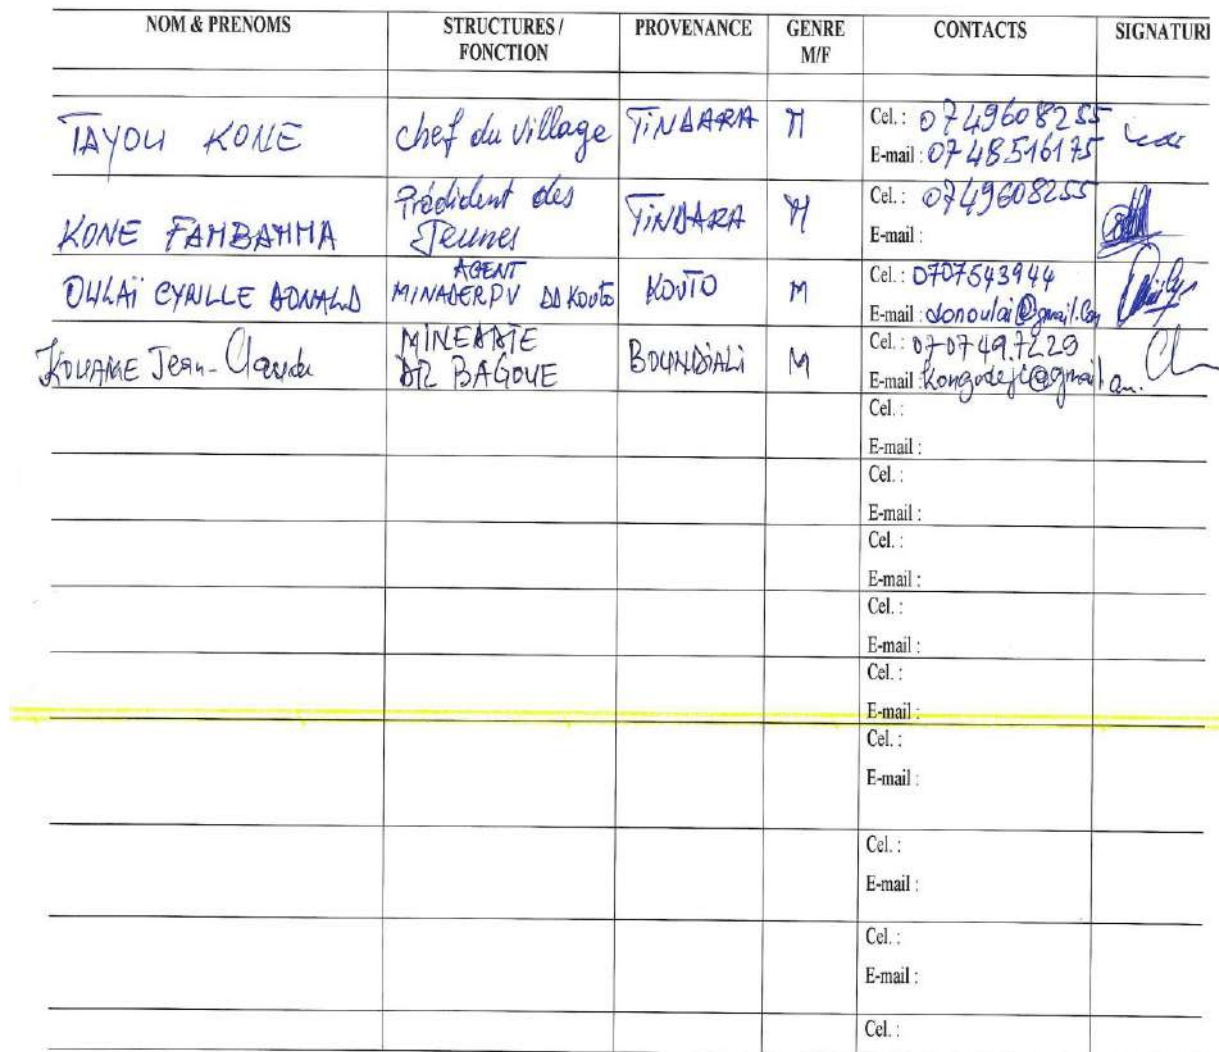 NOM & PRENOMS STRUCTURES / PROVENANCE GENRE CONTACTS SIGNATURE
FONCTION M/F
TAYOU KONE chef du village TINDARA M Cel. : 0749608255
E-mail : 0748516175
KONE FAMBAMMA Prédident des Jeunes TINDARA M Cel. : 0749608255
E-mail :
OULAÏ CYRILLE DONALD AGENT MINADERPV DD KOUTO KOUTO M Cel. : 0707543944
E-mail : donoulai@gmail.com
KOUAME Jean-Claude MINEDDTE DR BAGOUE BOUNDIALI M Cel. : 0707497229
E-mail : kongodeji@gmail.com
Cel. :
E-mail :
Cel. :
E-mail :
Cel. :
E-mail :
Cel. :
E-mail :
Cel. :
E-mail :
Cel. :
E-mail :
Cel. :
E-mail :
Cel. :
E-mail :
Cel. :